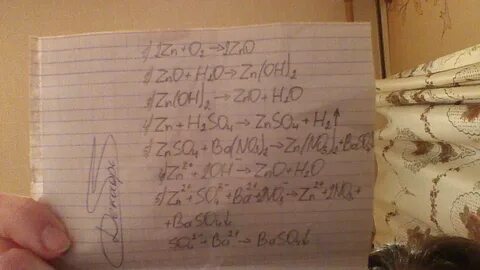 1) 2Zn + O₂ → 2ZnO
2) ZnO + H₂O → Zn(OH)₂
3) Zn(OH)₂ → ZnO + H₂O
4) Zn + H₂SO₄ → ZnSO₄ + H₂↑
5) ZnSO₄ + Ba(NO₃)₂ → Zn(NO₃)₂ + BaSO₄
Zn²⁺ + 2OH⁻ → ZnO + H₂O
Zn²⁺ + SO₄²⁻ + Ba²⁺ + 2NO₃⁻ → Zn²⁺ + 2NO₃⁻ +
+ BaSO₄↓
SO₄²⁻ + Ba²⁺ → BaSO₄↓